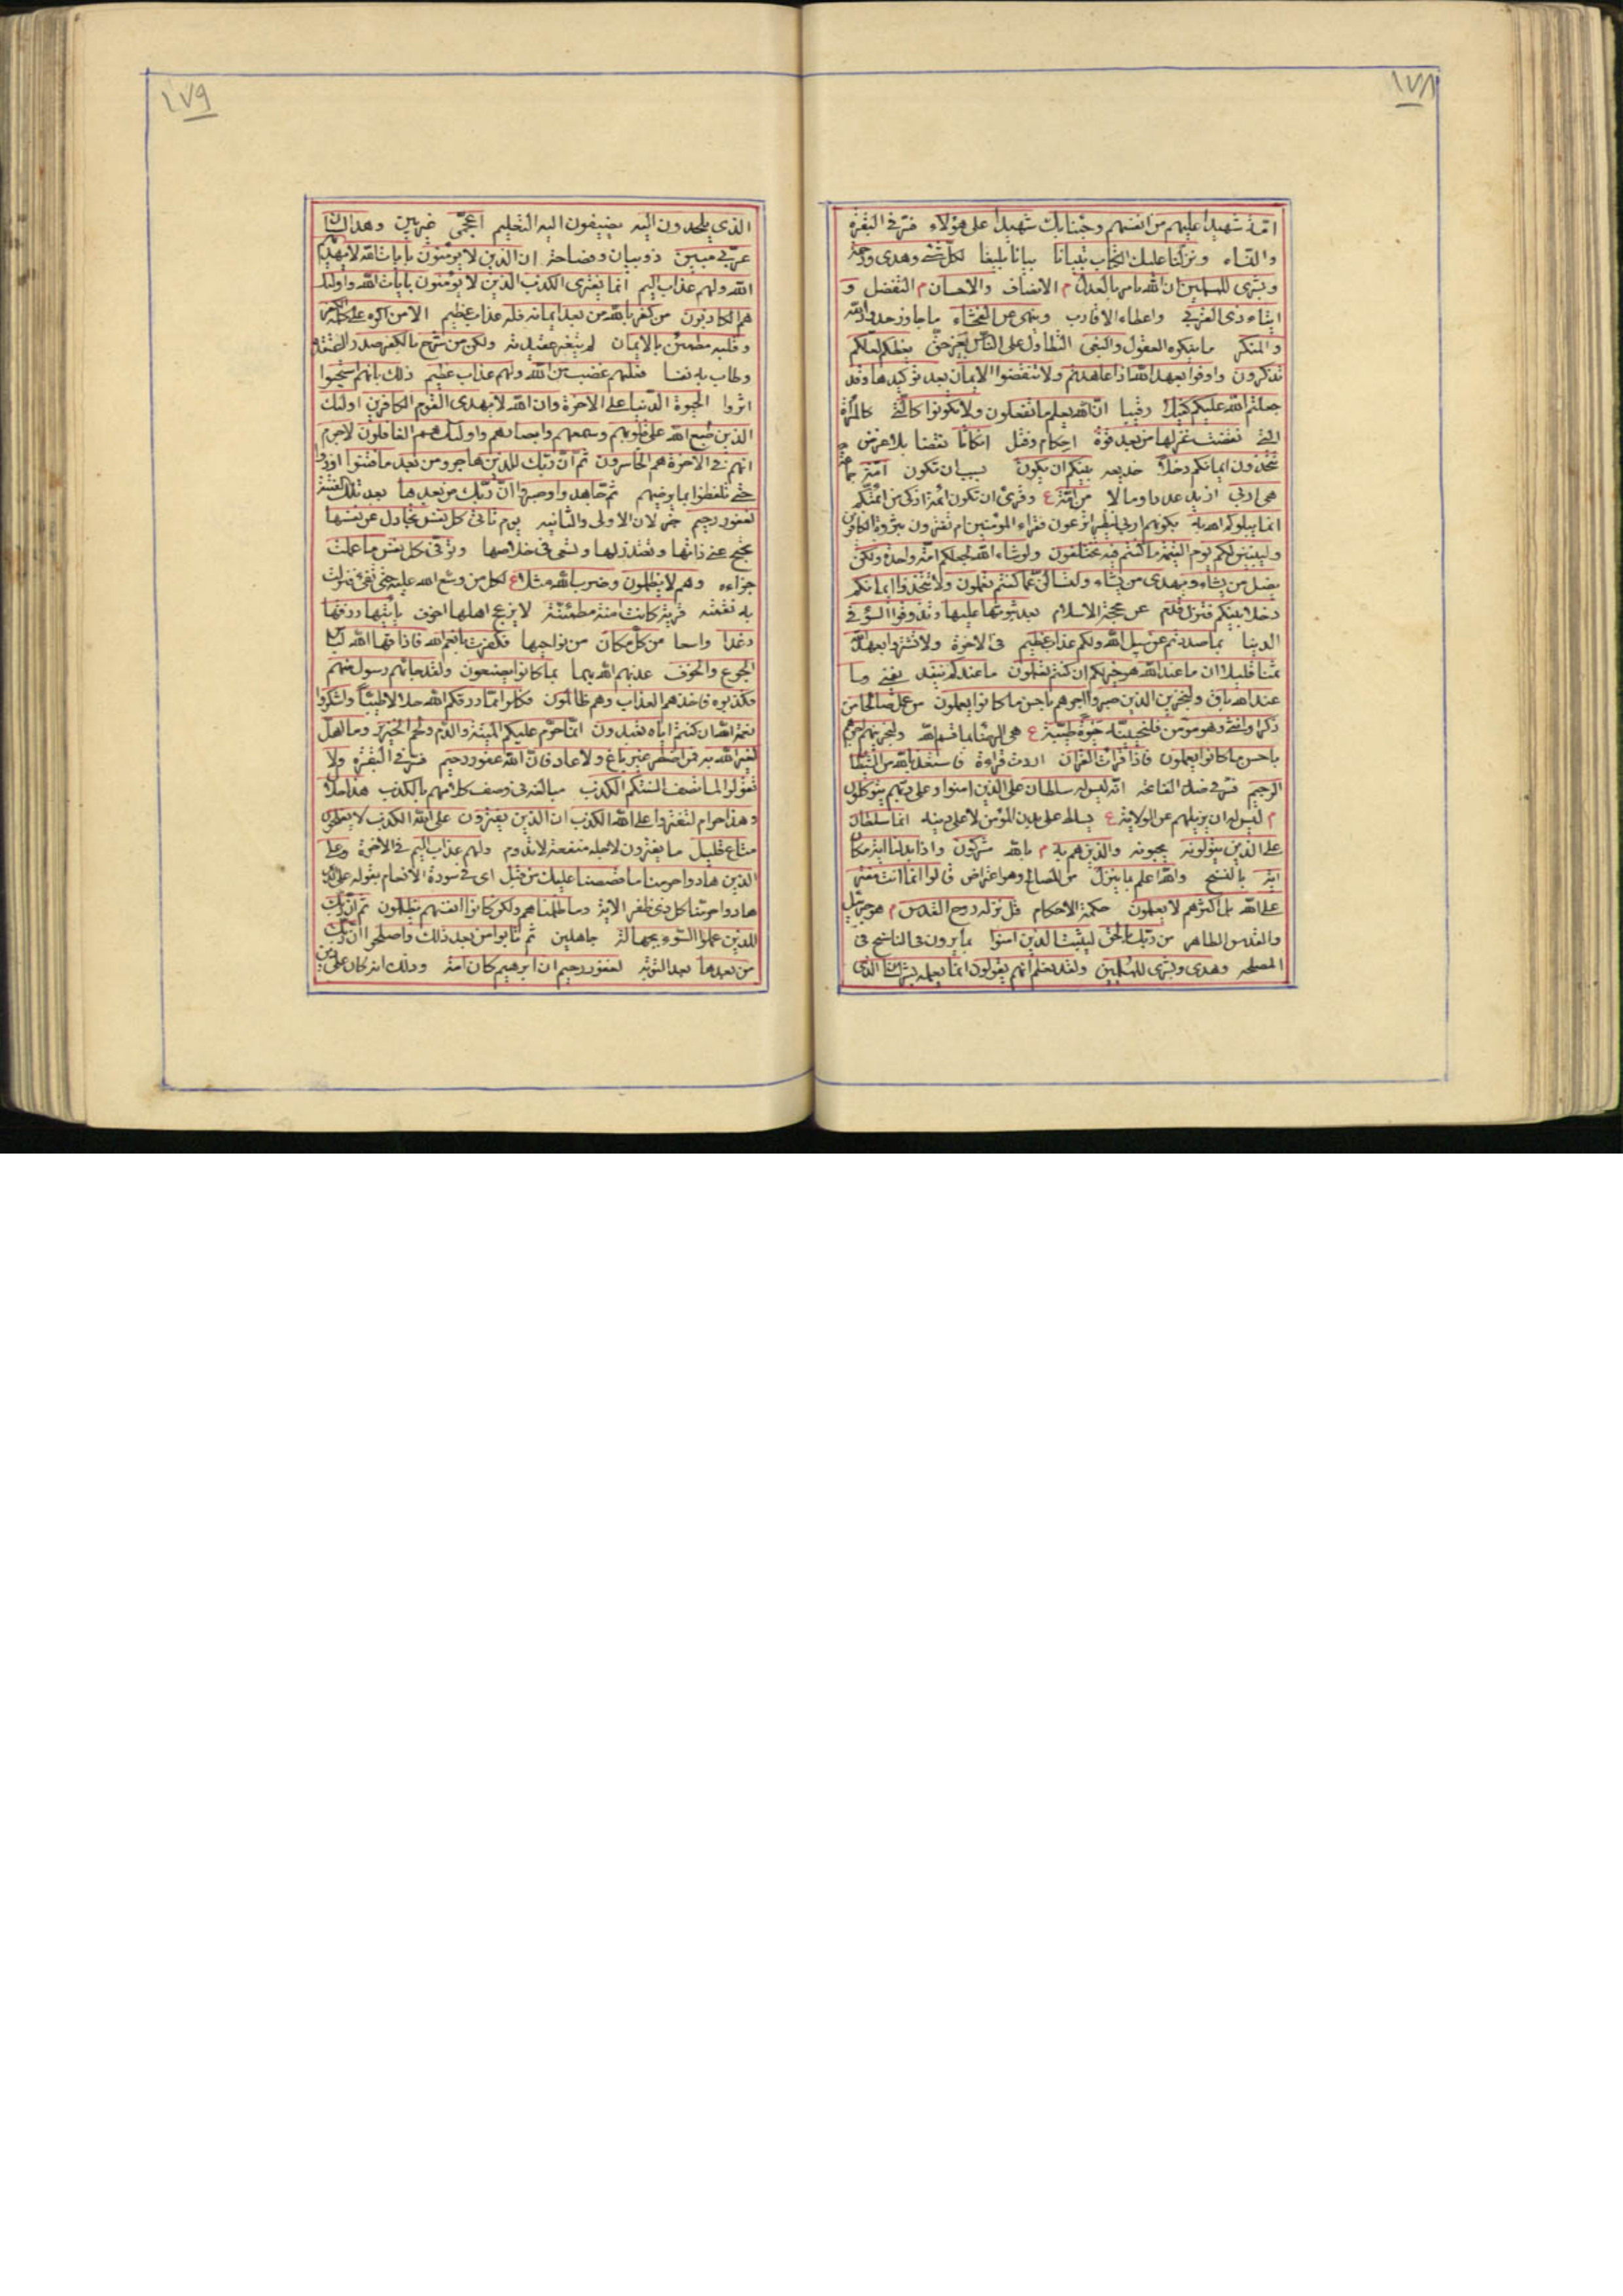 ١٧٨
امّة شهيدا عليهم من انفسهم وجئنا بك شهيدا على هؤلاء فسّر في البقرة
والنساء ونزّلنا عليك الكتاب تبيانا بيانا بليغا لكلّ شئ وهدى ورحمة
وبشرى للمسلمين ان الله يامر بالعدل م الانصاف والاحسان م التفضل و
ايتاء ذى القربى واعطاء الاقارب وينهى عن الفحشاء ما جاوز حدود الله
والمنكر ما ينكره العقول والبغى التطاول على الناس بغير حقّ يعظكم لعلّكم
تذكرون واوفوا بعهد الله اذا عاهدتم ولا تنقضوا الايمان بعد توكيدها وقد
جعلتم الله عليكم كفيلا رقيبا انّ الله يعلم ما تفعلون ولا تكونوا كالّتى كالمرأة
التى نقضت غزلها من بعد قوّة احكام وفتل انكاثا نقضا بلا غرض
تتّخذون ايمانكم دخلا خديعه بينكم ان يكون بسبب ان تكون امّة جماعة
هى اربى ازيد عددا ومالا من امّة ع وقرئ ان تكون ائمة ازكى من ائمّتكم
انما يبلوكم الله به بكونهم اربى لينظر اتزعون فقراء المؤمنين ام تغترون بثروة الكافرين
وليبيّننّ لكم يوم القيمة ما كنتم فيه تختلفون ولو شاء الله لجعلكم امّة واحدة ولكن
يضل من يشاء ويهدى من يشاء ولتسالنّ عمّا كنتم تعملون ولا تتّخذوا ايمانكم
دخلا بينكم فتزلّ قدم عن محجة الاسلام بعد ثبوتها عليها وتذوقوا السّوء فى
الدنيا بما صددتم عن سبيل الله ولكم عذاب عظيم فى الاخرة ولا تشتروا بعهد الله
ثمنا قليلا ان ما عند الله هو خير لكم ان كنتم تعلمون ما عندكم ينفد يفنى وما
عند الله باق ولنجزين الذين صبروا اجرهم باحسن ما كانوا يعملون من عمل صالحا من
ذكر او انثى وهو مؤمن فلنحيينّه حيوة طيّبة ع هى الرضا بما قسم الله ولنجزينهم اجرهم
باحسن ما كانوا يعملون فاذا قرات القران اردت قراءة فاستعذ بالله من الشيطان
الرجيم فسّر فى فضل الفاتحة انه ليس له سلطان على الذين امنوا وعلى ربّهم يتوكّلون
م ليس له ان يزيلهم عن الولاية ع يسلط على بدن المؤمن لا على دينه انما سلطانه
على الذين يتولونه يحبونه والذين هم به م بالله مشركون واذا بدلنا اية مكان
اية بالنسخ والله اعلم بما ينزل من المصالح وهو اعتراض قالوا انما انت مفتر
على الله بل اكثرهم لا يعلمون حكمة الاحكام قل نزله روح القدس م هو جبرئيل
والقدس الطاهر من ربّك بالحق ليثبت الذين امنوا بما يرون فى الناسخ فى
المصلحه وهدى وبشرى للمسلمين ولقد نعلم انهم يقولون انما يعلمه بشر لسان الذى
١٧٩
الذى يلحدون اليه يضيفون اليه التعليم اعجمّى غير بين وهذا لسان
عربّى مبين ذو بيان وفصاحة ان الذين لا يؤمنون بايات الله لا يهديهم
الله ولهم عذاب اليم انما يفترى الكذب الذين لا يؤمنون بايات الله واولئك
هم الكاذبون من كفر بالله من بعد ايمانه فله عذاب عظيم الا من اكره على كلمة الكفر
وقلبه مطمئن بالايمان لم يتغير عقيدته ولكن من شرح بالكفر صدرا اعتقده
وطاب به نفسا فعليهم غضب من الله ولهم عذاب عظيم ذلك بانهم استحبوا
اثروا الحيوة الدّنيا على الاخرة وان الله لا يهدى القوم الكافرين اولئك
الذين طبع الله على قلوبهم وسمعهم وابصارهم واولئك هم الغافلون لا جرم
انهم فى الاخرة هم الخاسرون ثم انّ ربّك للذين هاجروا من بعد ما فتنوا اوذوا
حتى تلفظوا بما يرضيهم ثم جاهدوا وصبروا انّ ربّك من بعدها بعد تلك الفتنة
لغفور رحيم خبر لان الاولى والثانيه يوم تاتى كل نفس تجادل عن نفسها
تحتج عن ذاتها وتعتذر لها وتسعى فى خلاصها وتوفّى كل نفس ما عملت
جزاءه وهم لا يظلمون وضرب الله مثلا ع لكل من وسّع الله عليه
به نقمته قرية كانت امنة مطمئنّة لا يزعج اهلها خوف ياتيها رزقها
رغدا واسعا من كلّ مكان من نواحيها فكفرت بانعم الله فاذاقها الله لباس
الجوع والخوف عذبهم الله بهما بما كانوا يصنعون ولقد جائهم رسول منهم
فكذّبوه فاخذهم العذاب وهم ظالمون فكلوا ممّا رزقكم الله حلالا طيّبا واشكروا
نعمة الله ان كنتم اياه تعبدون انما حرّم عليكم الميتة والدّم ولحم الخنزير وما اهلّ
لغير الله به فمن اضطر غير باغ ولا عاد فانّ الله غفور رحيم فسّر فى البقرة ولا
تقولوا لما تصف السنتكم الكذب مبالغة فى وصف كلامهم بالكذب هذا حلال
وهذا حرام لتفتروا على الله الكذب ان الذين يفترون على الله الكذب لا يفلحون
متاع قليل ما يفترون لاجله منفعة لا تدوم ولهم عذاب اليم فى الاخرة وعلى
الذين هادوا حرمنا ما قصصنا عليك من قبل اى فى سورة الانعام بقوله على الذين
هادوا حرّمنا كل ذى ظفر الاية وما ظلمناهم ولكن كانوا انفسهم يظلمون ثم انّ ربّك
للذين عملوا السّوء بجهالة جاهلين ثم تابوا من بعد ذلك واصلحوا انّ ربّك
من بعدها بعد التوبة لغفور رحيم ان ابرهيم كان امّة وذلك انه كان على دين